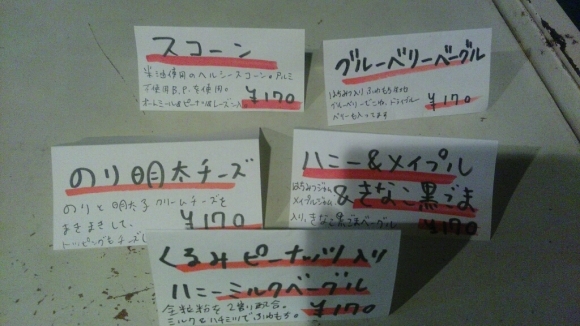 スコーン
米油使用のヘルシースコーン。アルミ
不使用B.P.を使用。
オートミール・ピーナツ・レーズン入。
¥170
ブルーベリーベーグル
はちみつ入り
ブルーベリー ドライブルー
ベリーも入ってます
¥170
のり明太チーズ
のりと明太子クリームチーズを
まきまきして、
トッピングもチーズ
¥170
ハニー&メイプル
&きなこ黒ごま
はちみつ
メイプル
入り、きなこ黒ごまベーグル
¥170
くるみピーナッツ入り
ハニーミルクベーグル
全粒粉を2割配合。
ミルクとハチミツでふわもち。
¥170